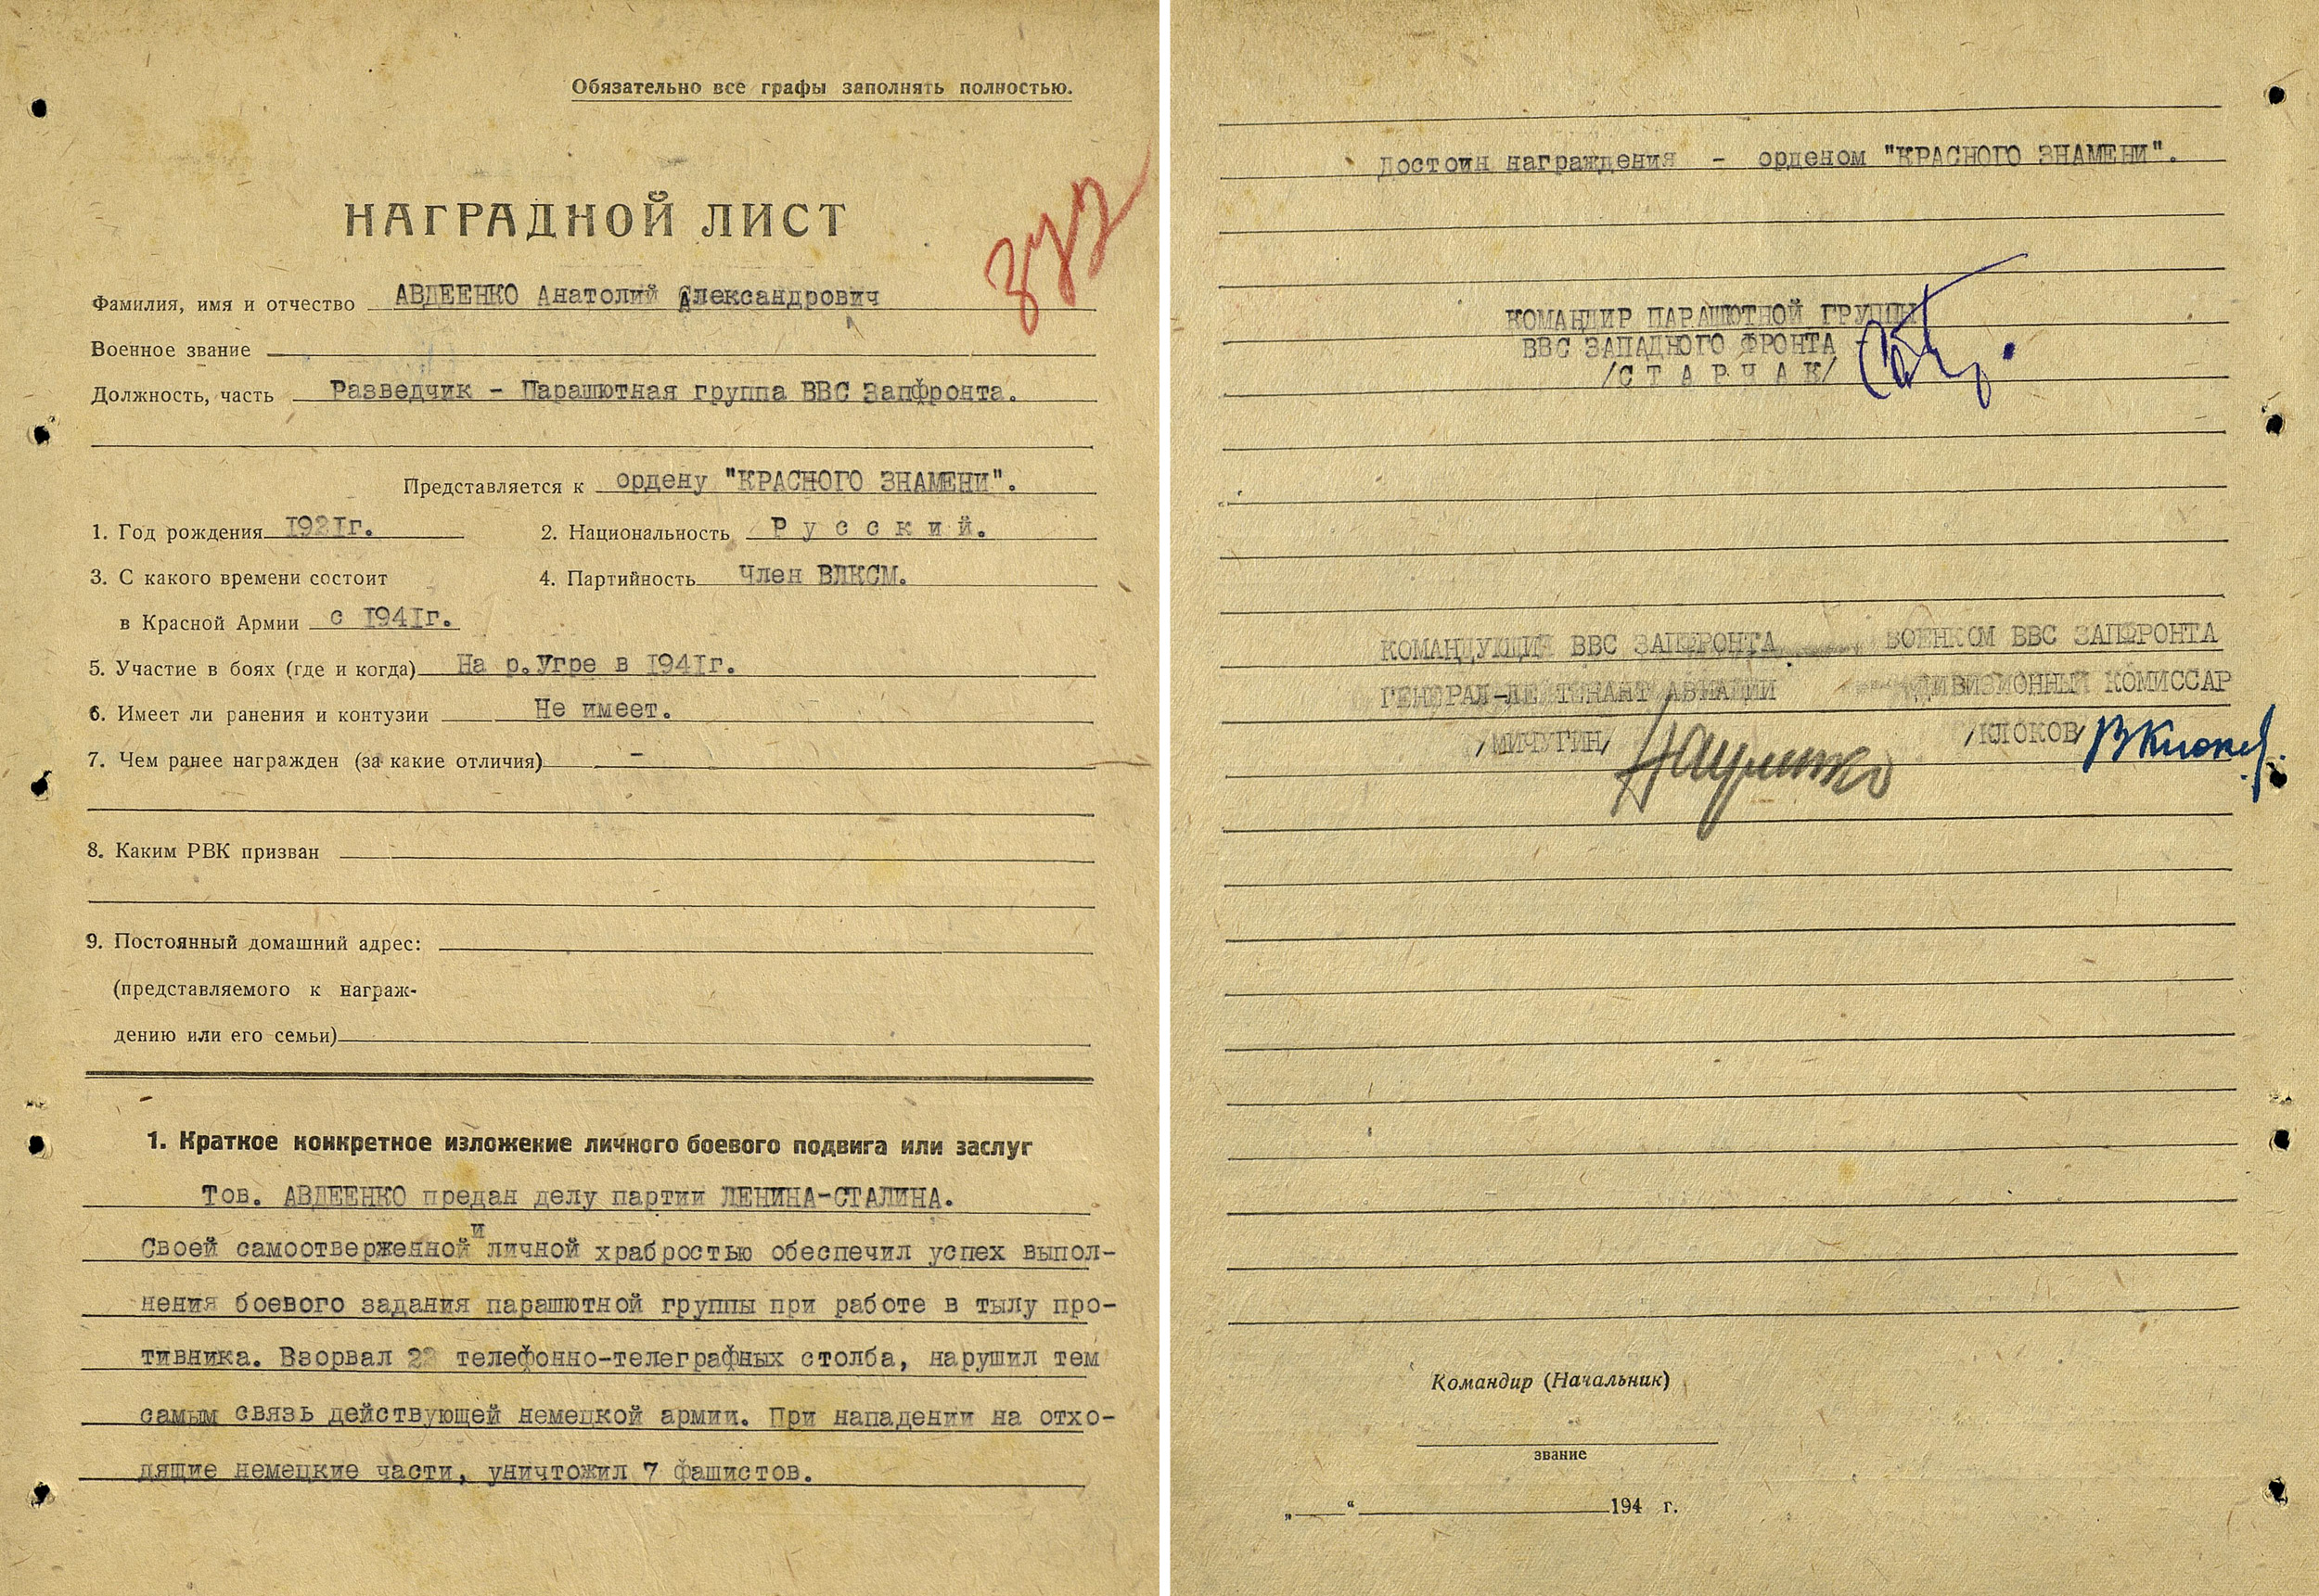 Обязательно все графы заполнять полностью.
НАГРАДНОЙ ЛИСТ
Фамилия, имя и отчество АВДЕЕНКО Анатолий Александрович
Военное звание
Должность, часть Разведчик - Парашютная группа ВВС Запфронта.
Представляется к ордену "КРАСНОГО ЗНАМЕНИ".
1. Год рождения 1921г. 2. Национальность Р у с с к и й.
3. С какого времени состоит 4. Партийность Член ВЛКСМ.
в Красной Армии с 1941г.
5. Участие в боях (где и когда) На р.Угре в 1941г.
6. Имеет ли ранения и контузии Не имеет.
7. Чем ранее награжден (за какие отличия) -
8. Каким РВК призван
9. Постоянный домашний адрес:
(представляемого к награж-
дению или его семьи)
1. Краткое конкретное изложение личного боевого подвига или заслуг
Тов. АВДЕЕНКО предан делу партии ЛЕНИНА-СТАЛИНА.
Своей самоотверженной и личной храбростью обеспечил успех выпол-
нения боевого задания парашютной группы при работе в тылу про-
тивника. Взорвал 22 телефонно-телеграфных столба, нарушил тем
самым связь действующей немецкой армии. При нападении на отхо-
дящие немецкие части, уничтожил 7 фашистов.
Достоин награждения - орденом "КРАСНОГО ЗНАМЕНИ".
КОМАНДИР ПАРАШЮТНОЙ ГРУППЫ
ВВС ЗАПАДНОГО ФРОНТА -
/С Т А Р Ч А К/
КОМАНДУЮЩИЙ ВВС ЗАПФРОНТА ВОЕНКОМ ВВС ЗАПФРОНТА
ГЕНЕРАЛ-ЛЕЙТЕНАНТ АВИАЦИИ ДИВИЗИОННЫЙ КОМИССАР
/МИЧУГИН/ /КЛОКОВ/ ВКлоков
Командир (Начальник)
звание
„ “ 194 г.